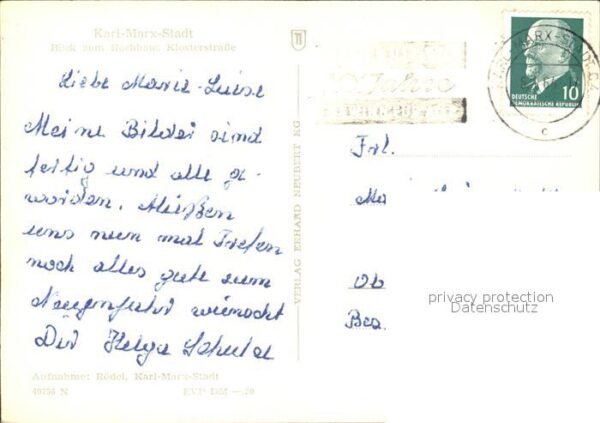 Karl-Marx-Stadt
Blick vom Hochhaus Klosterstraße
Liebe Marie-Luise
Meine Bilder sind
fertig und alle ge-
worden. Müßen
uns nun mal Trefen
noch alles gute zum
wünscht
Dir Helga
Aufnahme: Rödel, Karl-Marx-Stadt
40256 N EVP DM -.20
VERLAG ERHARD NEUBERT KG
10 Jahre
KARL-MARX-STADT C4
c
DEUTSCHE
DEMOKRATISCHE REPUBLIK
10
Frl.
Ob
privacy protection
Datenschutz